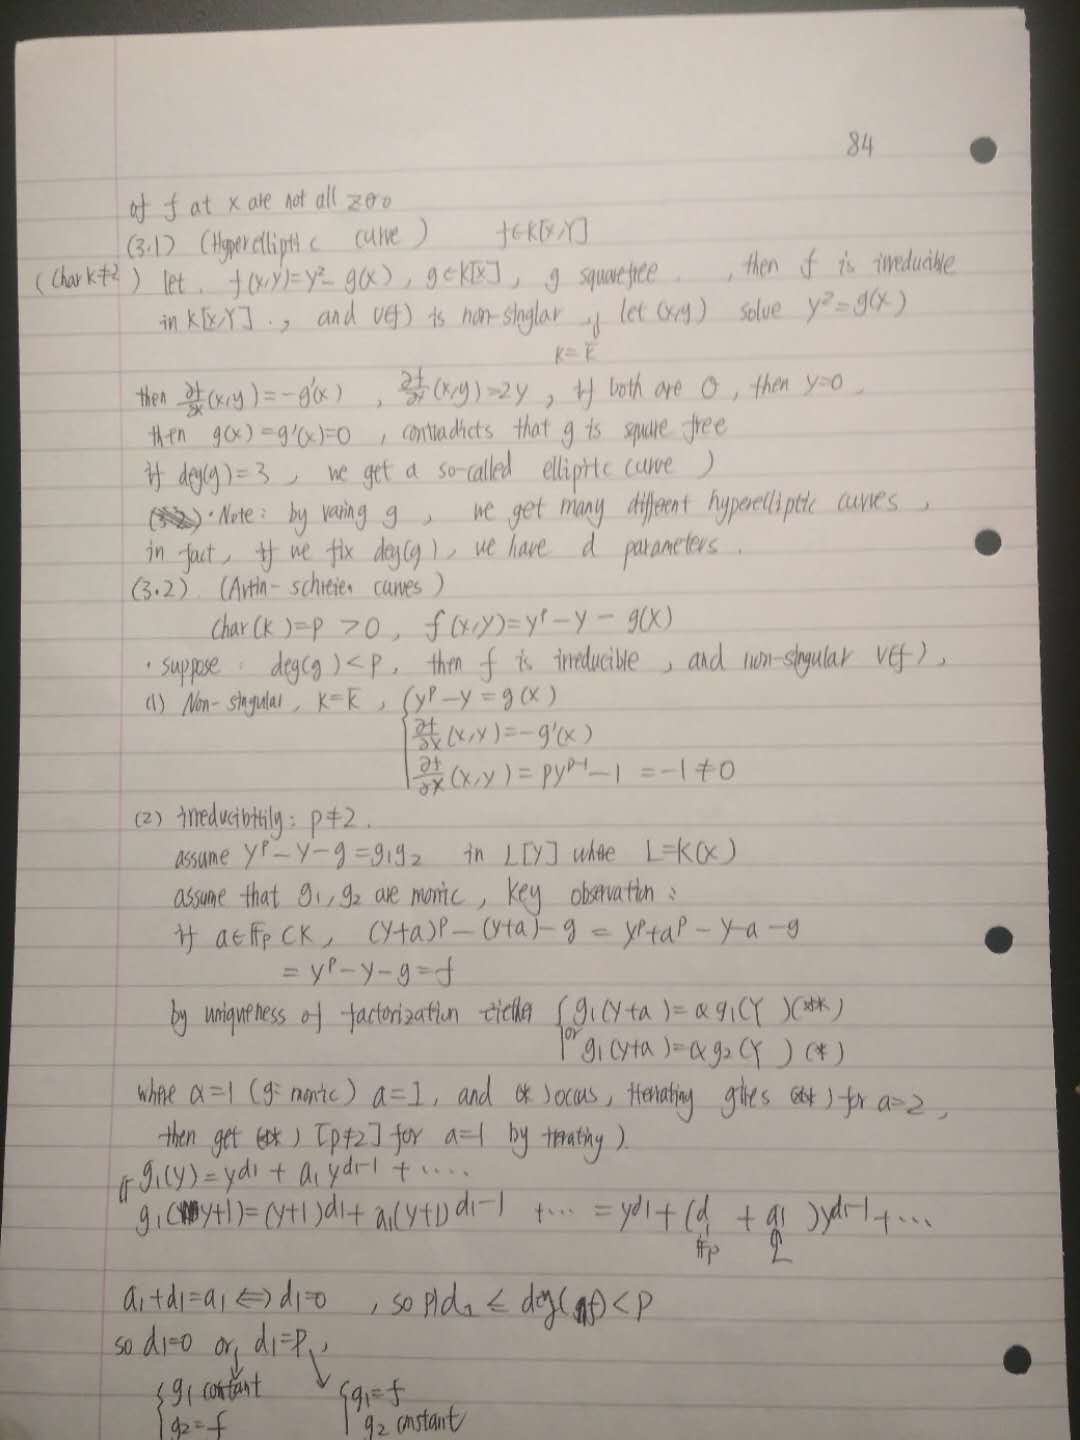 84
of f at x are not all zero
(3.1) (Hyperelliptic curve) f∈k[X,Y]
(Char k≠2) let. f(x,Y)=Y²-g(X), g∈K[X], g squarefree. , then f is irreducible
in K[X,Y]., and V(f) is non-singlar, if let (x,y) solve y²=g(x)
K=K̄
then ∂f/∂x(x,y)=-g'(x) , ∂f/∂Y(x,y)=2y, if both are 0, then y=0,
then g(x)=g'(x)=0, contradicts that g is square free
if deg(g)=3, we get a so-called elliptic curve)
• Note: by varing g, we get many different hyperelliptic curves,
in fact, if we fix deg(g), we have d parameters.
(3.2) (Artin-schreier curves)
Char(k)=p>0, f(X,Y)=Y^p-Y-g(X)
• suppose: deg(g)<p, then f is irreducible, and non-singular V(f),
(1) Non-singular, K=K̄, { y^p-y=g(x)
∂f/∂x(x,y)=-g'(x)
∂f/∂X(x,y)=py^{p-1}-1=-1≠0
(2) irreducibitily: p≠2.
assume Y^p-Y-g=g₁g₂ in L[Y] whee L=K(X)
assume that g₁,g₂ are monic, key observation:
if a∈Fp⊂K, (Y+a)^p-(Y+a)-g=Y^p+a^p-Y-a-g
=Y^p-Y-g=f
by uniqueness of factorization either { g₁(Y+a)=αg₁(Y)(**)
or g₁(Y+a)=αg₂(Y)(*)
whee α=1 (g: monic) a=1, and (*) occus, iterating gives (**) for a=2,
then get (**) [p≠2] for a=1 by iterating).
if g₁(y)=y^{d₁}+a₁y^{d₁-1}+....
g₁(y+1)=(y+1)^{d₁}+a₁(y+1)^{d₁-1} +... =y^{d₁}+(d₁+a₁)y^{d₁-1}+...
Fp L
a₁+d₁=a₁⇔d₁=0 , so p|d₁≤deg(f)<p
so d₁=0 or d₁=p,
{ g₁ constant { g₁=f
g₂=f g₂ constant